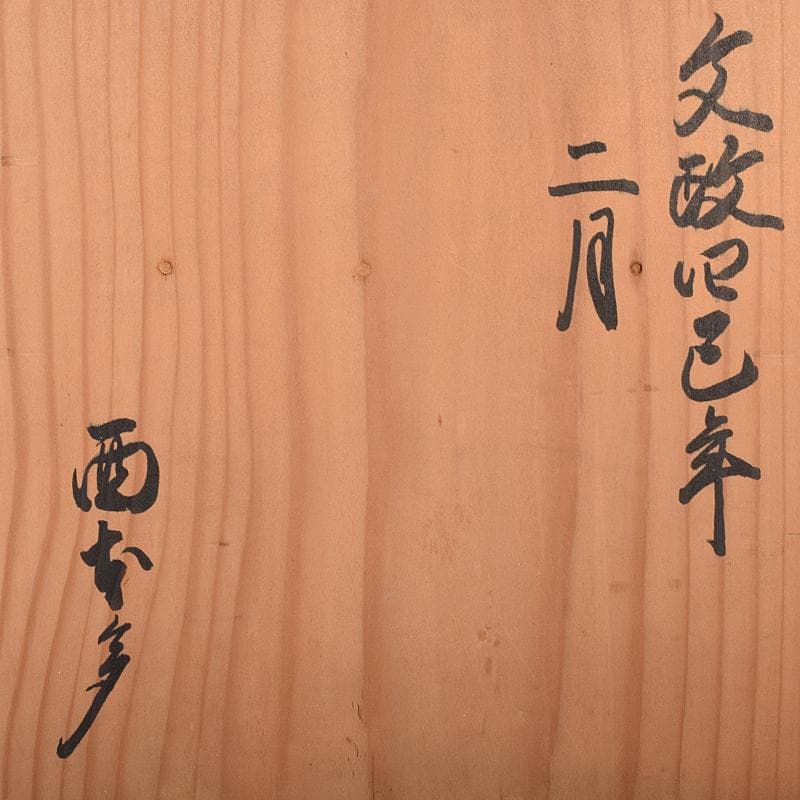 文政四巳年
二月
西本多